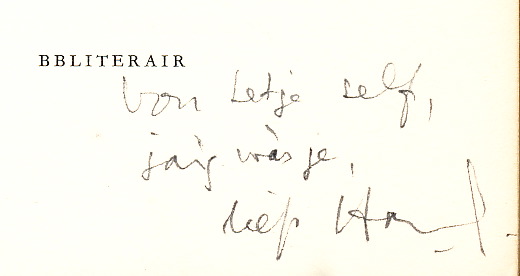 BBLITERAIR
von Letje self,
jaig wàs je,
liefs